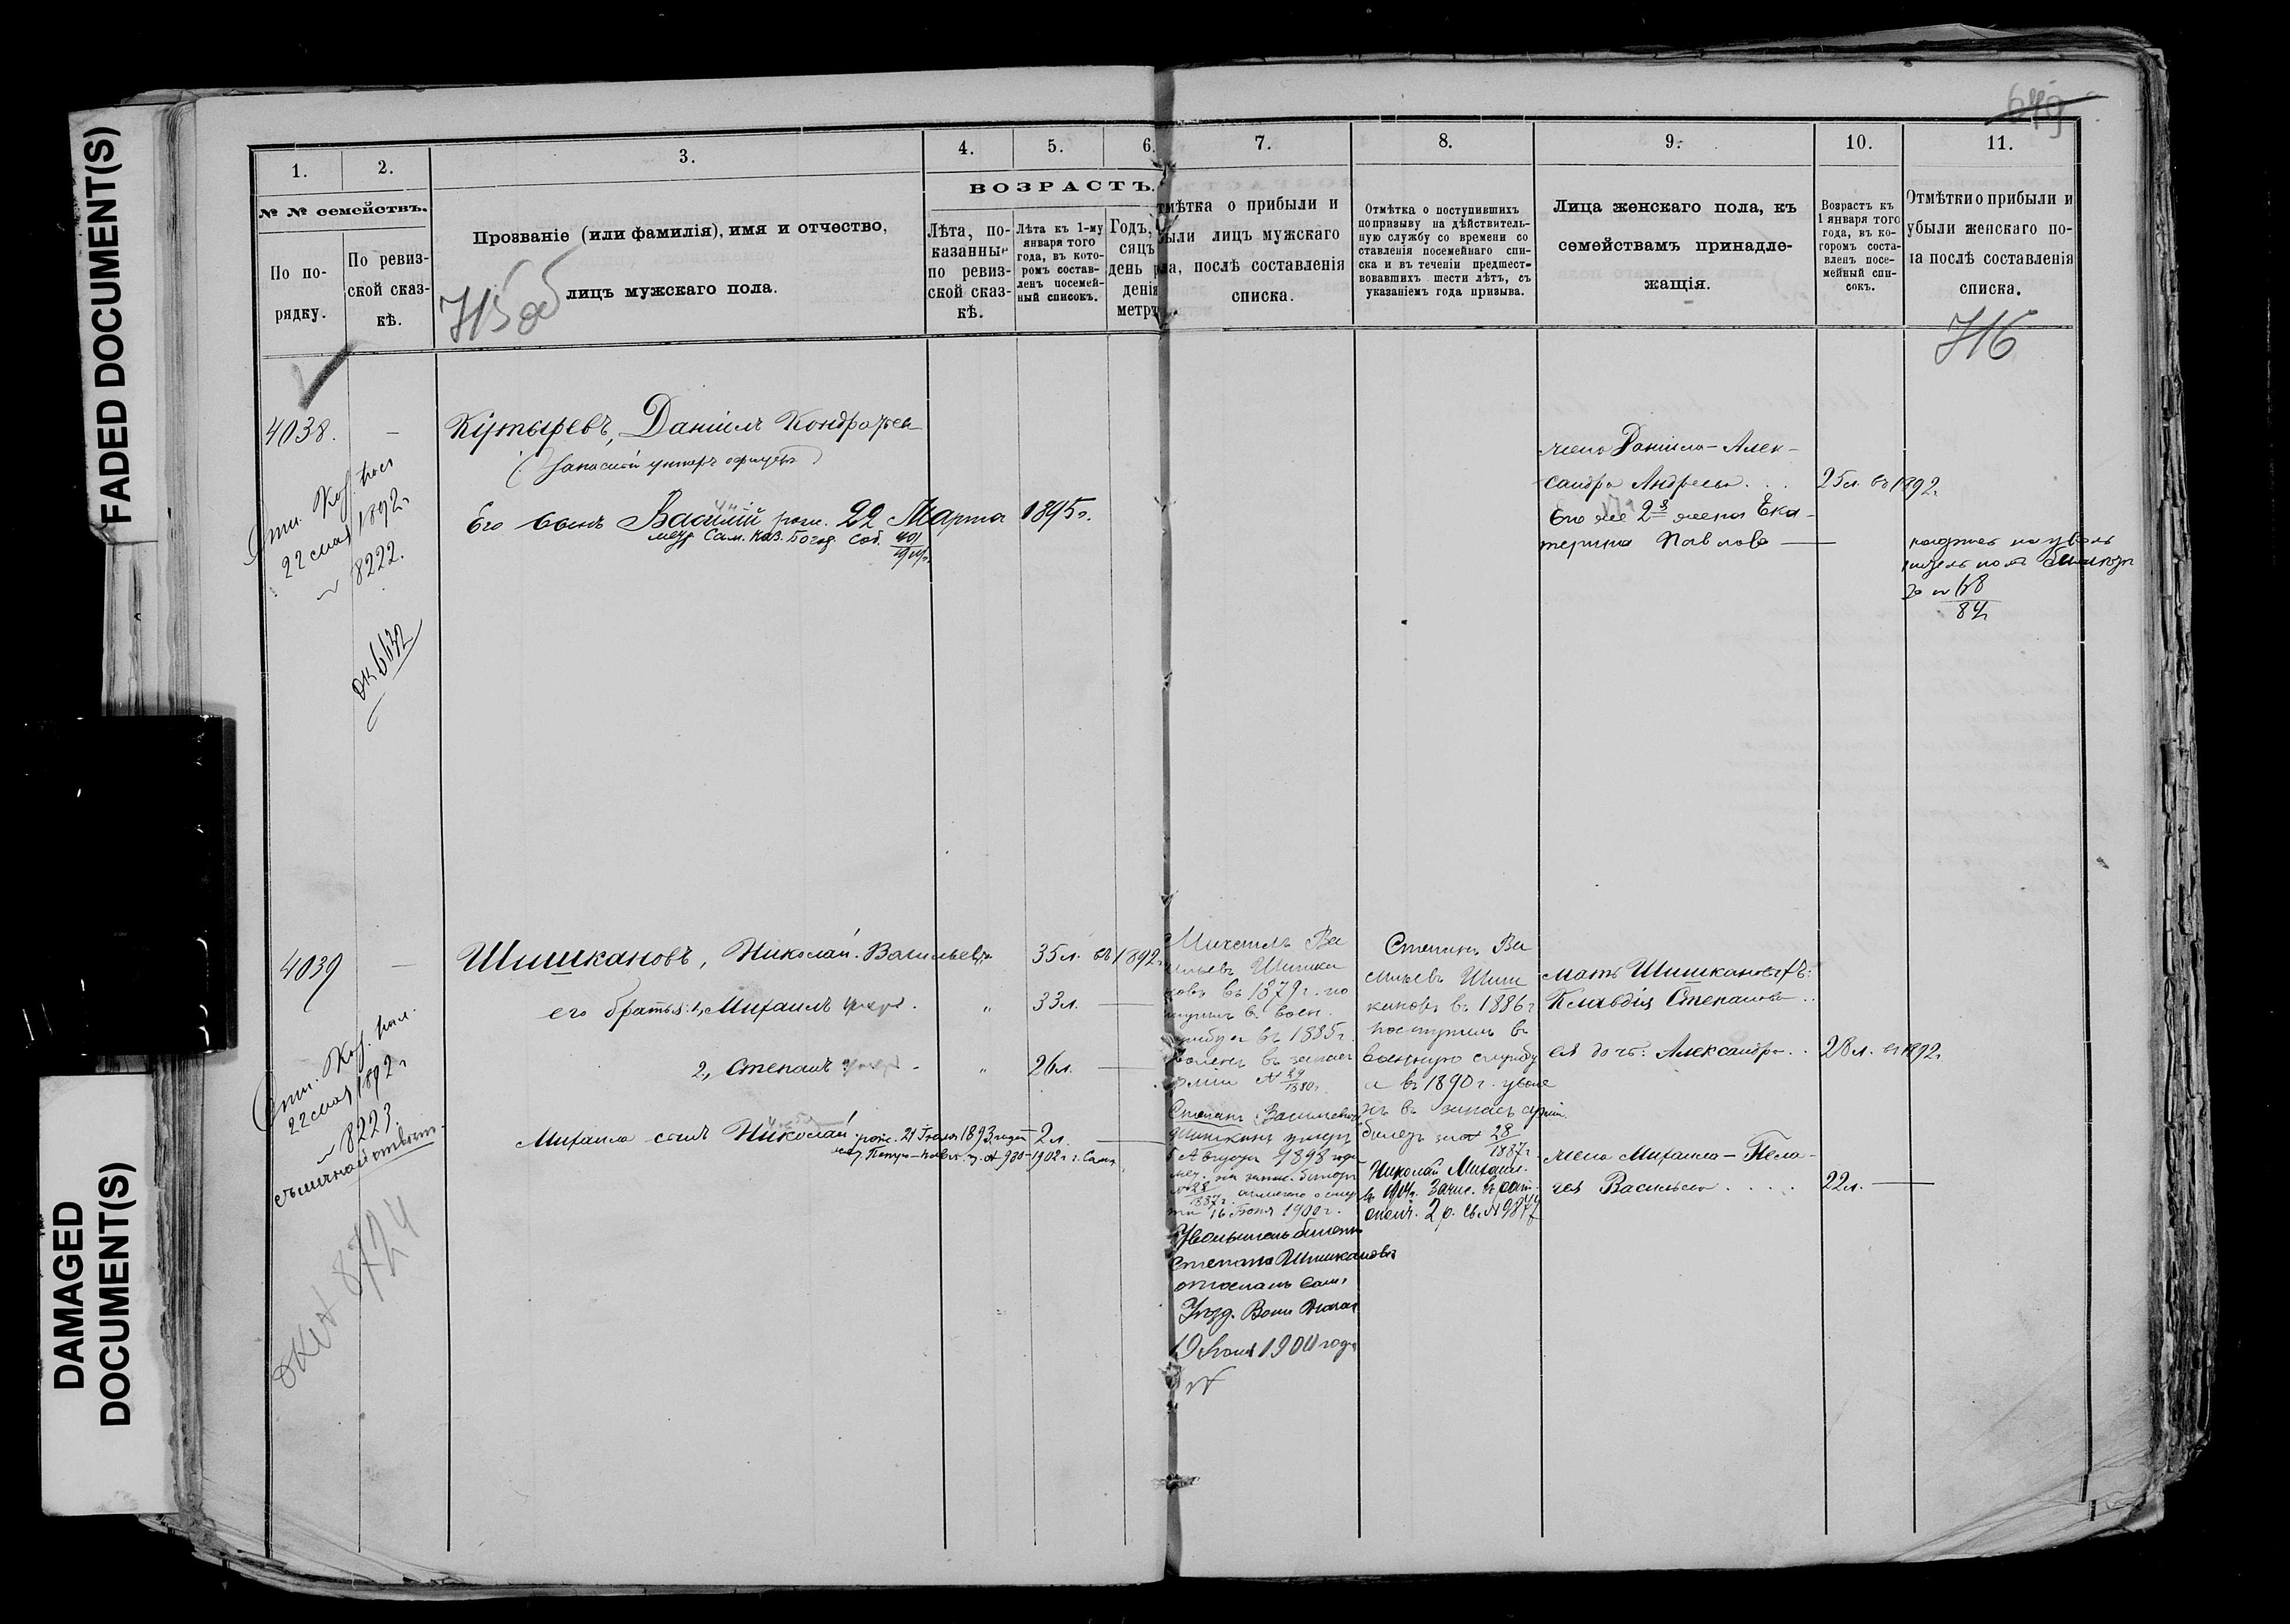 FADED DOCUMENT(S)
DAMAGED
DOCUMENT(S)
679
1.
2.
3.
4.
5.
6.
7.
8.
9.
10.
11.
№ № семействъ.
По по-
рядку.
По ревиз-
ской сказ-
кѣ.
Прозваніе (или фамилія), имя и отчество,
лицъ мужскаго пола.
715 об
ВОЗРАСТЪ.
Лѣта, по-
казанныя
по ревиз-
ской сказ-
кѣ.
Лѣта къ 1-му
января того
года, въ кото-
ромъ состав-
ленъ посемей-
ный списокъ.
Годъ,
сяцъ
день р
денія
метр
тмѣтка о прибыли и
были лицъ мужскаго
ла, послѣ составленія
списка.
Отмѣтка о поступившихъ
по призыву на дѣйствитель-
ную службу со времени со
ставленія посемейнаго спи-
ска и въ теченіи предшест-
вовавшихъ шести лѣтъ, съ
указаніемъ года призыва.
Лица женскаго пола, къ
семействамъ принадле-
жащія.
Возрастъ къ
1 января того
года, въ ко-
горомъ соста-
вленъ посе-
мейный спи-
сокъ.
Отмѣтки о прибыли и
убыли женскаго по-
ла послѣ составленія
списка.
716
4038.
22 мая 1892 г
№ 8222.
Кутыревъ, Даніилъ Кондратьев
(Запасной унтеръ офицеръ)
Его сынъ Василій рож. 22 Марта 1895 г.
метр Сам. Каз. Богор. Соб. 401
жена Даніила - Алек-
сандра Андреева . . .
25 л. въ 1892 г
Его же 2я жена Ека-
терина Павлова —
68
4039
22 мая 1892 г
№ 8223
съ личной отвѣт.
8724
Шишкановъ, Николай Васильевъ
35 л. въ 1892 г
его братья: 1, Михаилъ умеръ.
" 33 л. —
2, Степанъ умеръ -
" 26 л. —
Михаила сынъ Николай рож. 21 1893 года 2 л. —
Петро-Павл. ц. № 930 - 1902 г. г. Сам.
Михаилъ Ва
сильевъ Шишка
новъ въ 1879 г. по
ступилъ в. воен.
службу и въ 1885 г.
воленъ въ запасъ
арміи № 29
1880 г.
Степанъ Васильевич
Шишкинъ умеръ
5 Августа 1898 года
1887 г.
16 Іюня 1900 г.
Увольнительн билетъ
Степана Шишканова
отосланъ Сам.
Уѣзд. Воин Начал
19 Іюня 1900 года
№
Степанъ Ва
сильевъ Шиш
кановъ въ 1886 г
поступилъ въ
военную службу
и въ 1890 г. уволе
нъ въ запасъ арміи.
билетъ за № 28
1887 г.
Николай Михаил.
въ 1914 г. Зачис. въ рат.
ополч. 2 р. св. № 9877
мать Шишкановыхъ:
Клавдія Степанова ..
ея дочь: Александра . .
28 л. въ 1892 г
жена Михаила - Пела-
гея Васильева . . . .
22 л. —